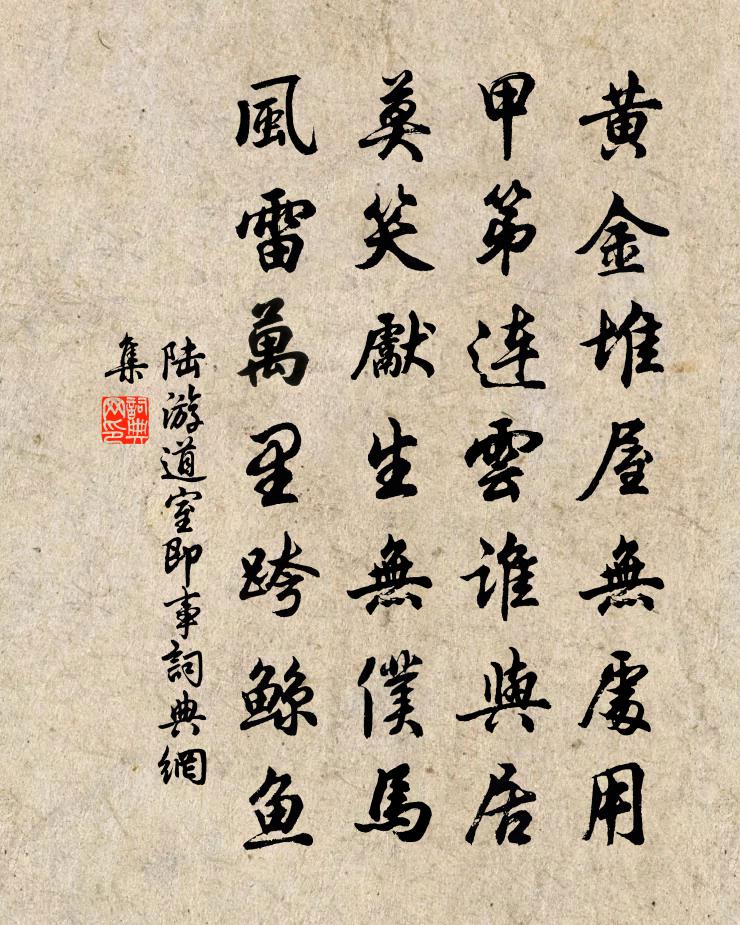 黃金堆屋無處用
甲第連雲誰與居
莫笑獻生無僕馬
風雷萬里跨鯨魚
陸游道室即事詞典網
集
詞典
网印